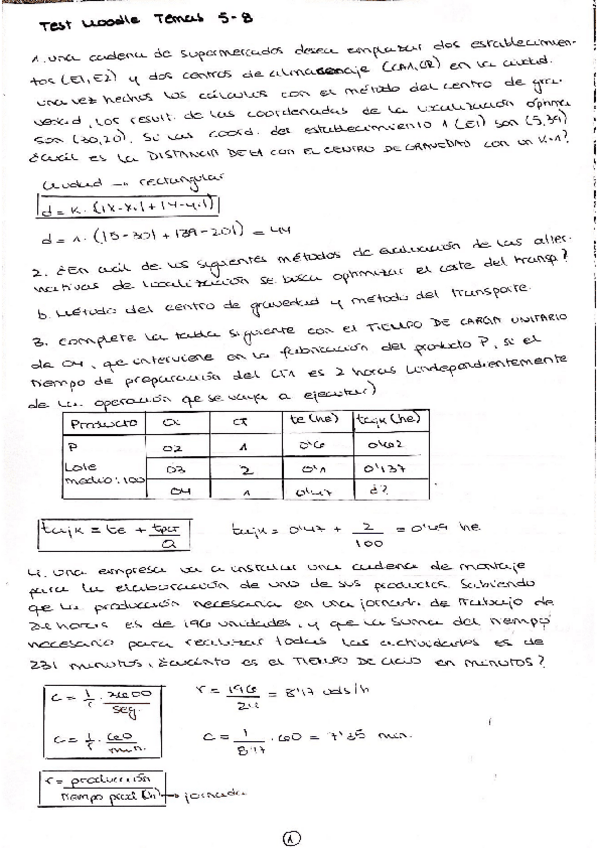 Test Moodle Temas 5-8
1. una cadena de supermercados desea emplazar dos establecimien-
tos (E1, E2) y dos centros de almacenaje (CA1, CA2) en la ciudad.
una vez hechos los cálculos con el método del centro de gra-
vedad, los result. de las coordenadas de la localización óptima
son (30,20). Si las coord. del establecimiento 1 (E1) son (5,39)
¿cuál es la DISTANCIA DE E1 CON EL CENTRO DE GRAVEDAD CON UN K=1?
ciudad → rectangular
d = K. (|x-x.| + |y-y.|)
d = 1. (|5-30| + |39-20|) = 44
2. ¿En cuál de los siguientes métodos de evaluación de las alter-
nativas de localización se busca optimizar el coste del transp.?
b. Método del centro de gravedad y método del transporte.
3. Complete la tabla siguiente con el TIEMPO DE CARGA UNITARIO
de O4, que interviene en la fabricación del producto P, si el
tiempo de preparación del CT1 es 2 horas (independientemente
de la operación que se vaya a ejecutar)
Producto CT te (he) tcijk (he)
P O2 1 0'6 0'62
Lote O3 2 0'1 0'137
medio: 100 O4 1 0'47 ¿?
tcijk = te + tprep/Q tcijk = 0'47 + 2/100 = 0'49 he
4. Una empresa va a instalar una cadena de montaje
para la elaboración de uno de sus productos. Sabiendo
que la producción necesaria en una jornada de trabajo de
24 horas es de 196 unidades, y que la suma del tiempo
necesario para realizar todas las actividades es de
231 minutos, ¿cuánto es el TIEMPO DE CICLO en minutos?
C = 1/r · 3600/seg. r = 196/24 = 8'17 uds/h
C = 1/r · 60/min. C = 1/8'17 · 60 = 7'35 min.
r = producción/tiempo prod (h) → jornada
1